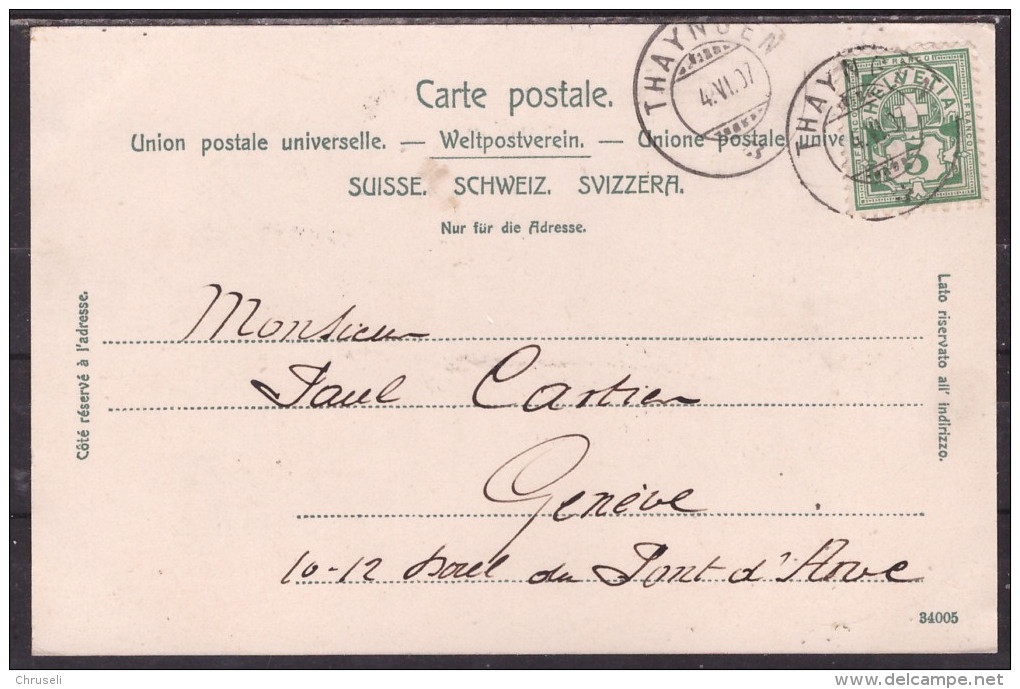 Carte postale.
Union postale universelle. — Weltpostverein. — Unione postale unive
SUISSE. SCHWEIZ. SVIZZERA.
Nur für die Adresse.
THAYNGEN
4.VI.07
THAYNG
FRANCO
HELVETIA
FRANCO
FRANCO
5
Côté réservé à l'adresse.
Lato riservato all' indirizzo.
Monsieur
Paul Cartier
Genève
10-12 du Pont d'Arve
34005
Chruseli